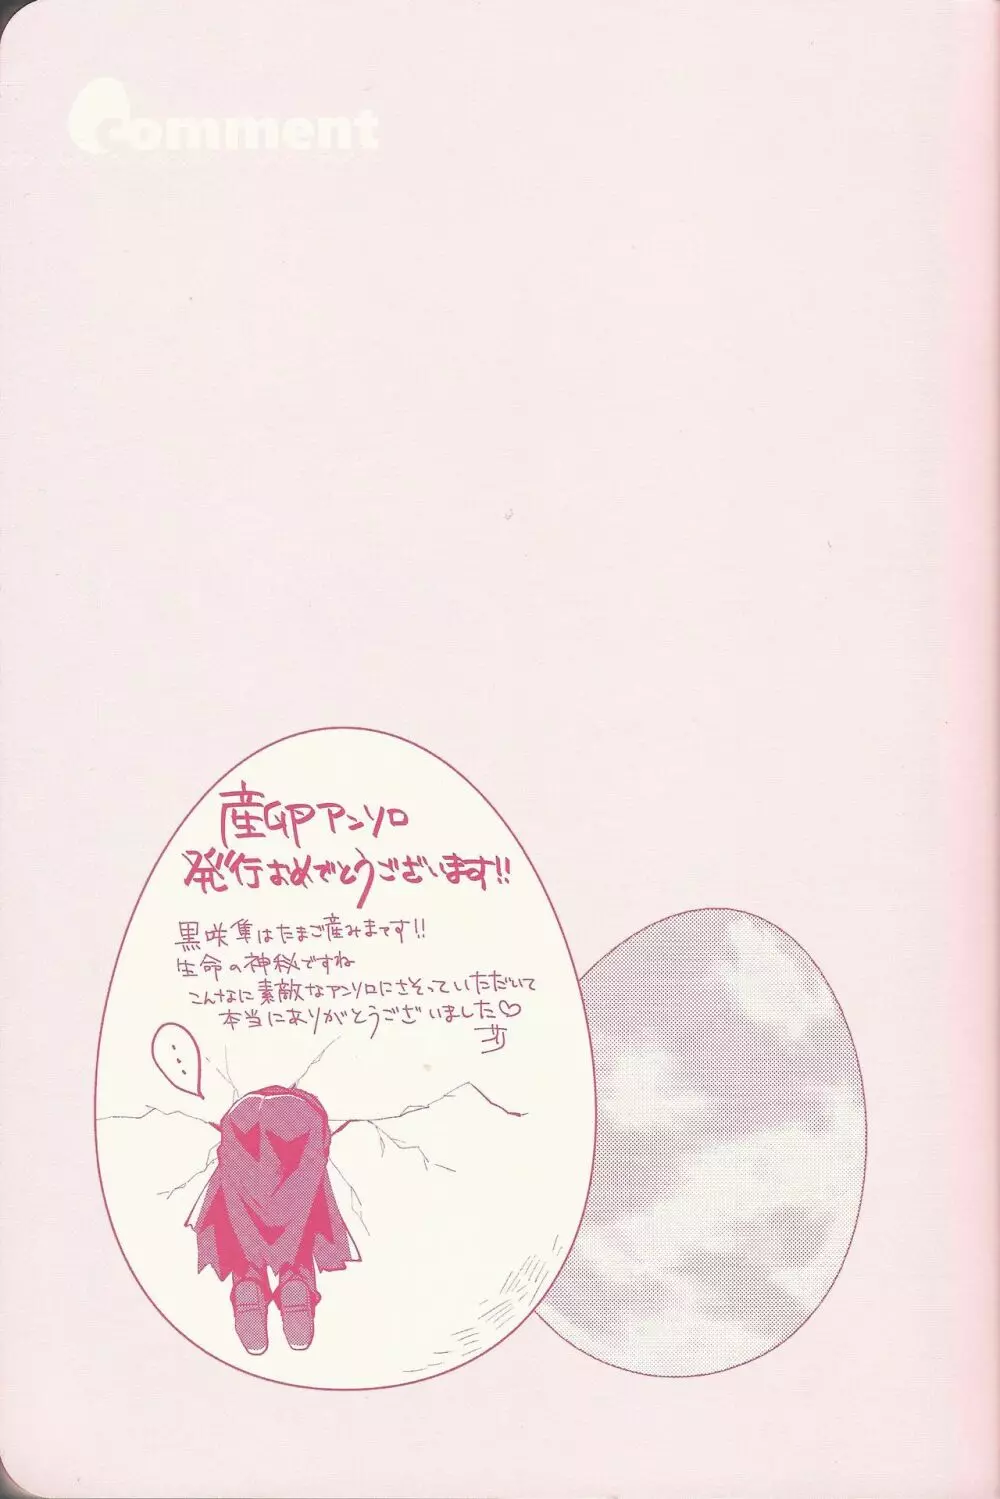 Comment
産卵アンソロ
発行おめでとうございます!!
黒咲隼はたまご産みまてす!!
生命の神秘ですね
こんなに素敵なアンソロにさそっていただいて
本当にありがとうございました♡
…